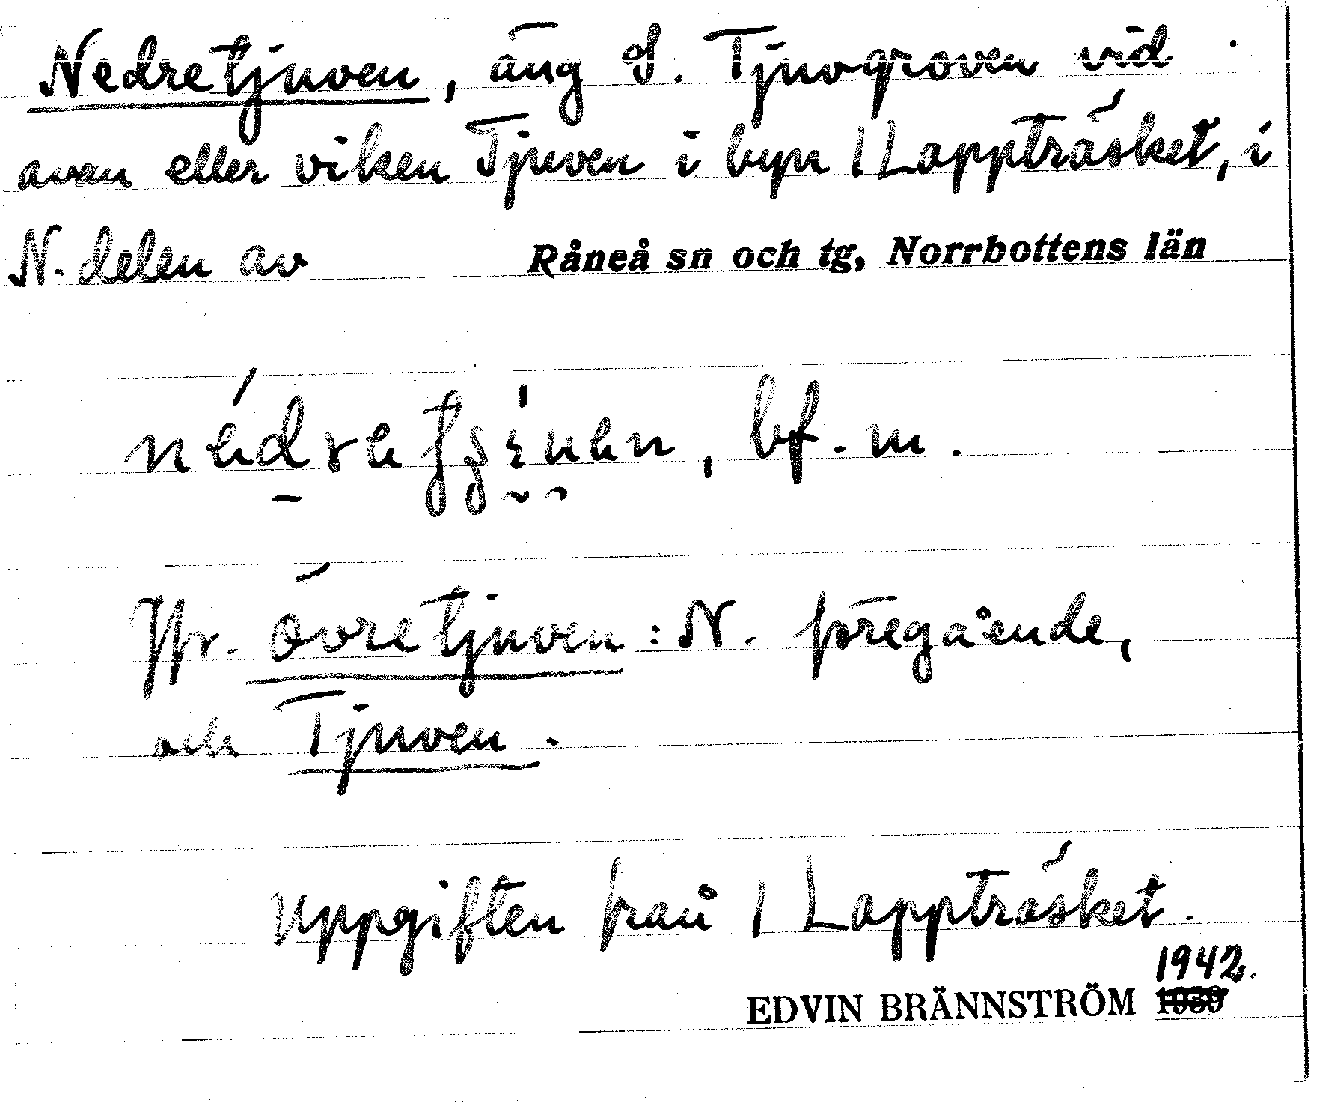 Nedretjuven, äng S. Tjuvgroven vid
avan eller viken Tjuven i byn 1 Lappträsket, i
N. delen av Råneå sn och tg, Norrbottens län
bf. m.
Jfr. Övretjuven : N. föregående,
och Tjuven.
Uppgiften från 1 Lappträsket.
1942.
EDVIN BRÄNNSTRÖM 1939